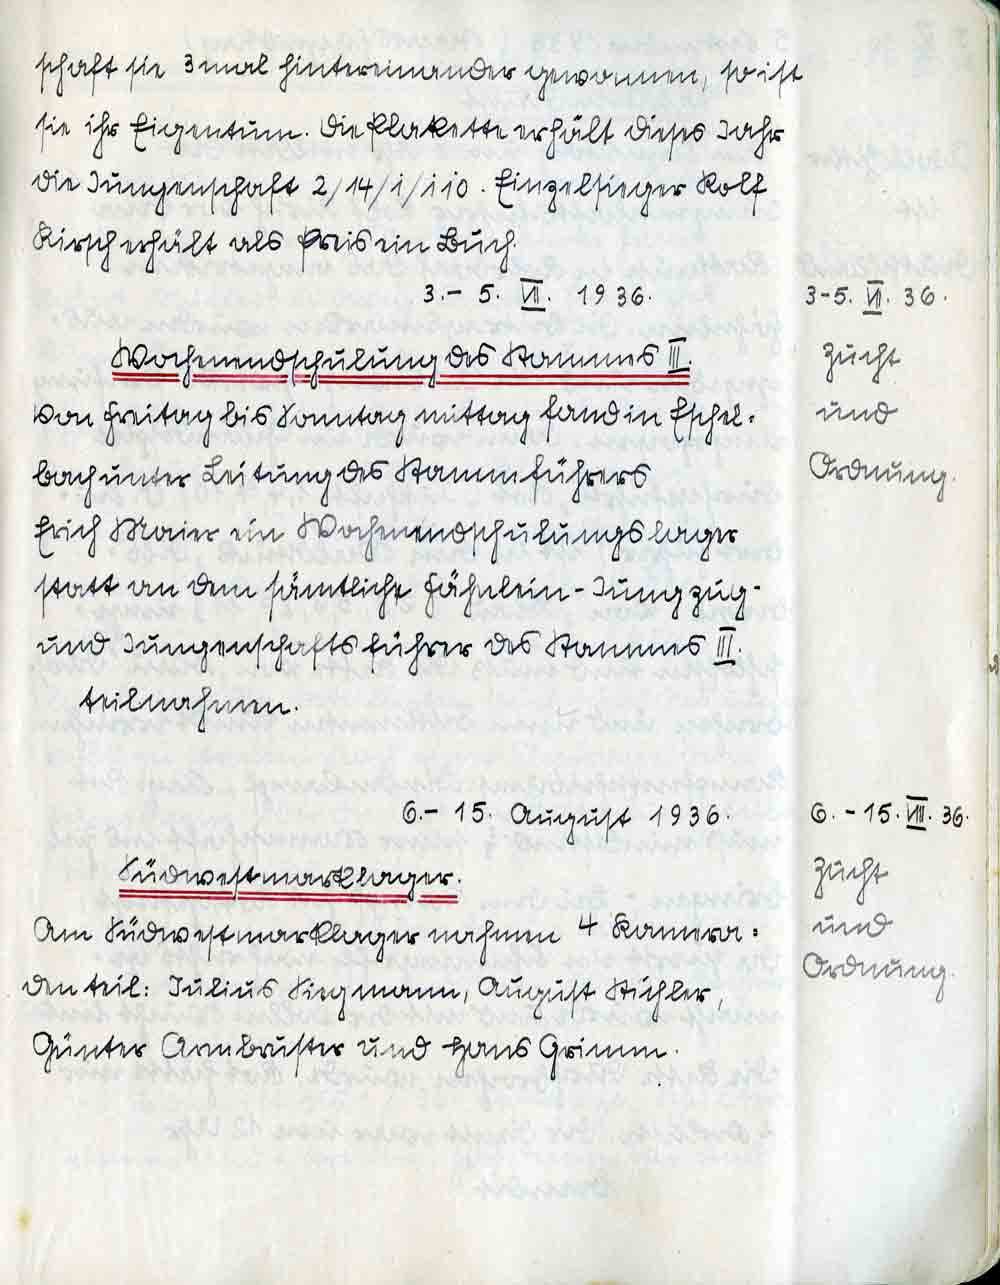 schaft sie 3 mal hintereinander gewonnen, so ist
sie ihr Eigentum. Die Plakette erhält dieses Jahr
die Jungenschaft 2/14/I/110. Einzelsieger Rolf
Kirsch erhält als Preis ein Buch.
3.- 5. VII. 1936.
3-5. VII. 36.
Wochenendschulung des Stammes III.
Zucht
Von Freitag bis Sonntag mittag fand in Eschel-
und
bach unter Leitung des Stammführers
Ordnung.
Erich Maier ein Wochenendschulungslager
statt an dem sämtliche Fähnlein-Jungzug-
und Jungenschaftsführer des Stammes III.
teilnahmen.
6.- 15. August 1936.
6. - 15. VIII. 36.
Südwestmarklager.
Zucht
Am Südwestmarklager nahmen 4 Kamera-
und
den teil: Julius Siegmann, August Stichler,
Ordnung.
Günter Armbruster und Hans Grimm.